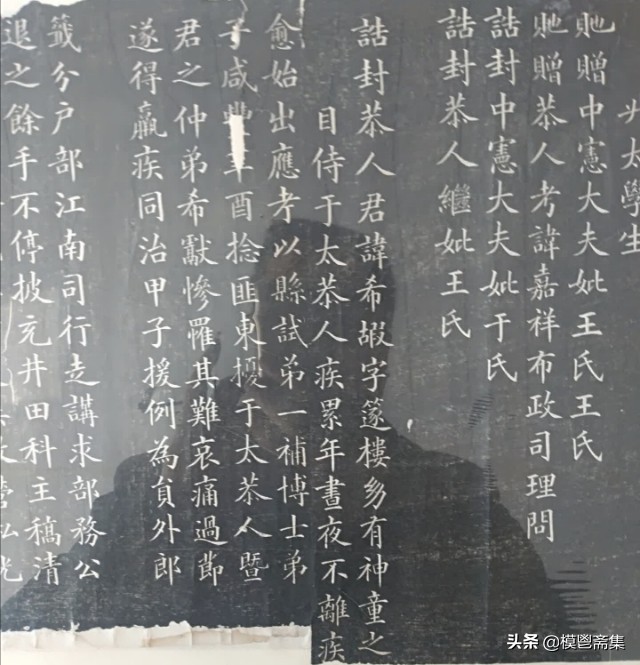 太學生
貤贈中憲大夫妣王氏王氏
貤贈恭人考諱嘉祥布政司理問
誥封中憲大夫妣于氏
誥封恭人繼妣王氏
誥封恭人君諱希嘏字篴樓多有神童之
目侍于太恭人疾累年晝夜不離疾
愈始出應考以縣試弟一補博士弟
子咸豐辛酉捻匪東擾于太恭人暨
君之仲弟希獻慘罹其難哀痛過節
遂得羸疾同治甲子援例為貟外郎
籤分戶部江南司行走講求部務公
退之餘手不停披充井田科主稿清
頭条 @模鬯斋集